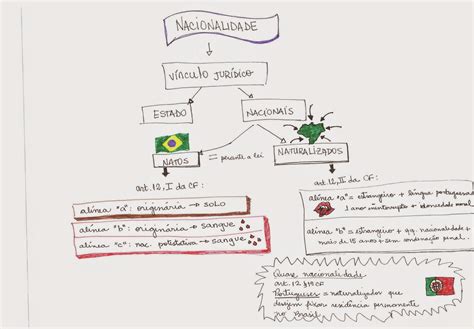 NACIONALIDADE
VÍNCULO JURÍDICO
ESTADO
NACIONAIS
NATOS
= perante a lei
NATURALIZADOS
art. 12, I da CF:
alínea "a": originária → SOLO
alínea "b": originária → sangue
alínea "c": nac. potestativa → sangue
art. 12, II da CF:
alínea "a" = estrangeiro + língua portuguesa
1 ano ininterrupto + idoneidade moral
alínea "b" = estrangeiro + qq. nacionalidade +
mais de 15 anos + sem condenação penal.
Quase nacionalidade
art. 12 §1º CF
Portugueses = naturalizados que
desejem fixar residência permanente
no Brasil